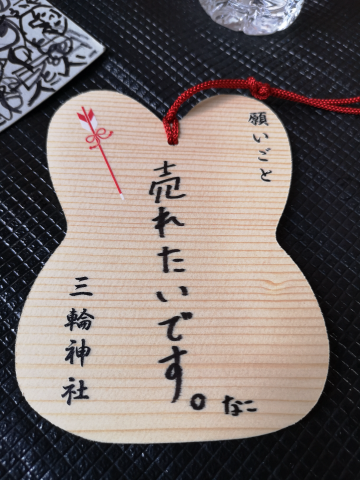 願いごと
売れたいです。
なこ
三輪神社